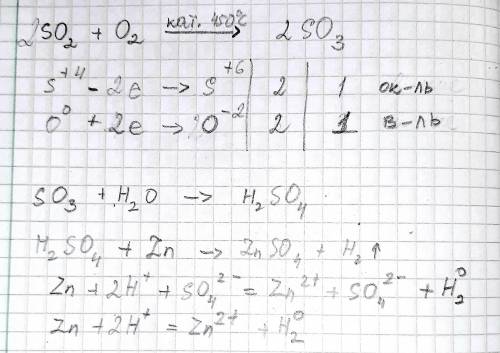 2SO₂ + O₂ кат. 450°C → 2SO₃
S⁺⁴ - 2e → S⁺⁶ | 2 | 1 ок-ль
O⁰ + 2e → O⁻² | 2 | 1 в-ль
SO₃ + H₂O → H₂SO₄
H₂SO₄ + Zn → ZnSO₄ + H₂↑
Zn + 2H⁺ + SO₄²⁻ = Zn²⁺ + SO₄²⁻ + H₂⁰
Zn + 2H⁺ = Zn²⁺ + H₂⁰